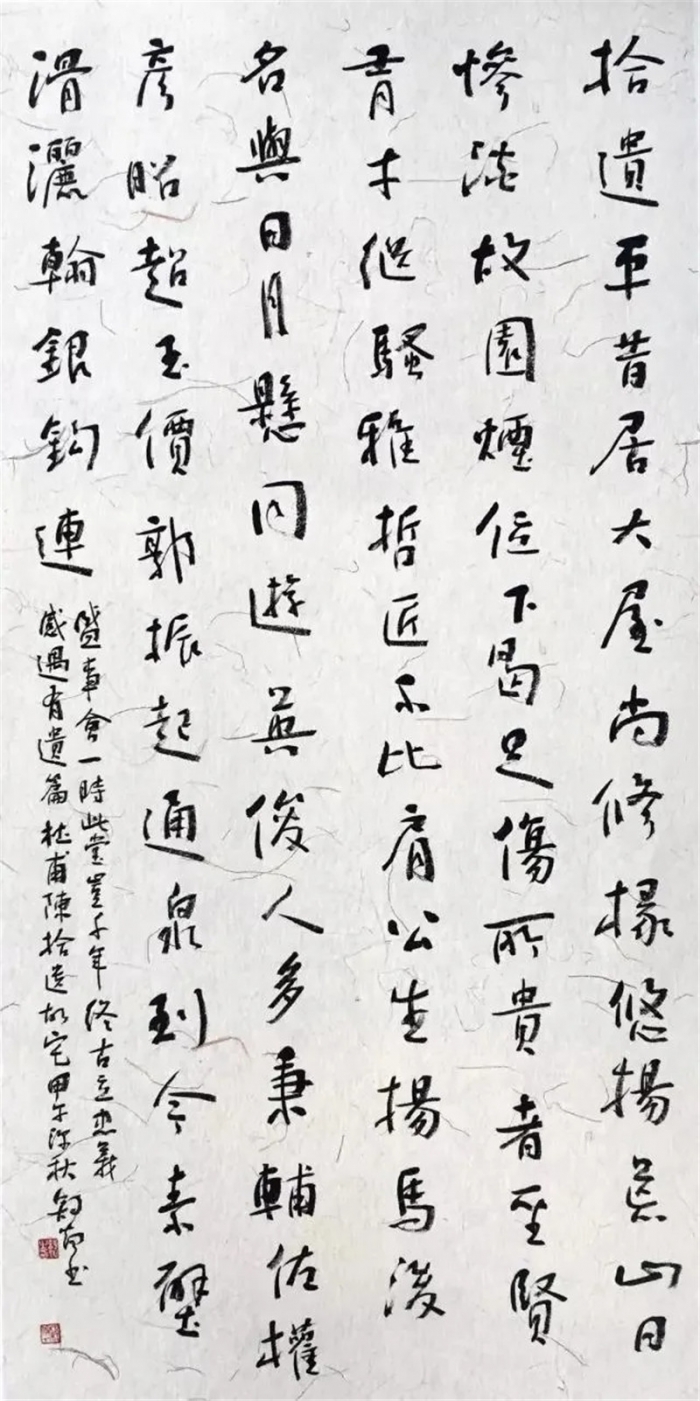 拾遺平昔居大屋尚修椽悠揚荒山日
慘淡故園煙位下曷足傷所貴者聖賢
有才繼騷雅哲匠不比肩公生揚馬後
名與日月懸同遊英俊人多秉輔佐權
彥昭超玉價郭振起通泉到今素壁
滑灑翰銀鈎連
盛事會一時此堂豈千年終古立忠義
感遇有遺篇杜甫陳拾遺故宅甲午深秋書